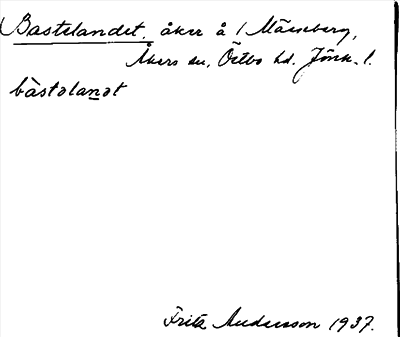 Bastelandet, åker å 1 Måseberg,
Åkers sn, Östbo hd. Jönk. l.
bàstəlanət
Fritz Andersson 1937.